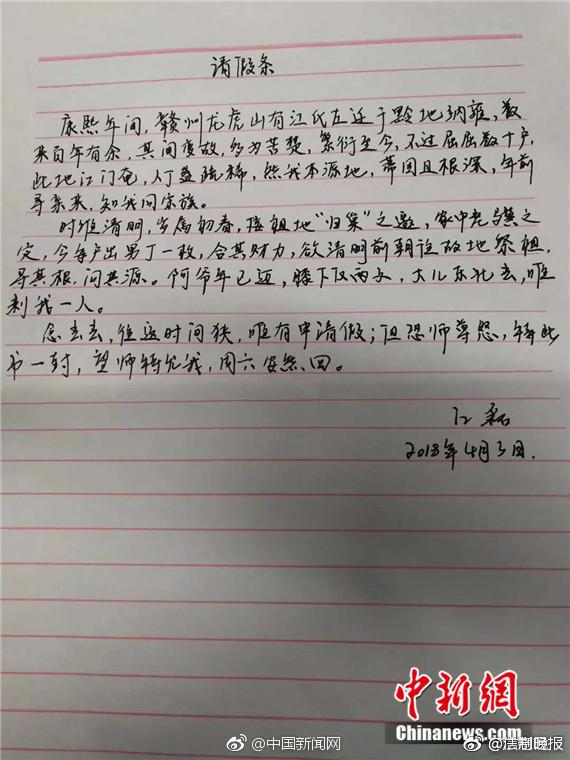 请假条
康熙年间，赣州龙虎山有江氏左迁于黔地纳雍，数
来百年有余，其间变故，多为苦楚，繁衍至今，不过屈屈数十户，
此地江门奄，人丁益疏稀，然我本源地，蒂固且根深，年前
寻亲来，知我同宗族。
时维清明，岁属初春，接祖地“归案”之邀，家中老骥之
定，今每户出男丁一枚，合其财力，欲清明前朝往故地祭祖，
寻其根，问其源。阿爷年已迈，膝下仅两支，大儿东北去，唯
剩我一人。
念去去，往返时间狭，唯有申请假；但恐师尊怒，特此
书一封，望师特允我，周六安然回。
江磊
2018年4月3日.
中新网
Chinanews.com
@中国新闻网
@法制晚报